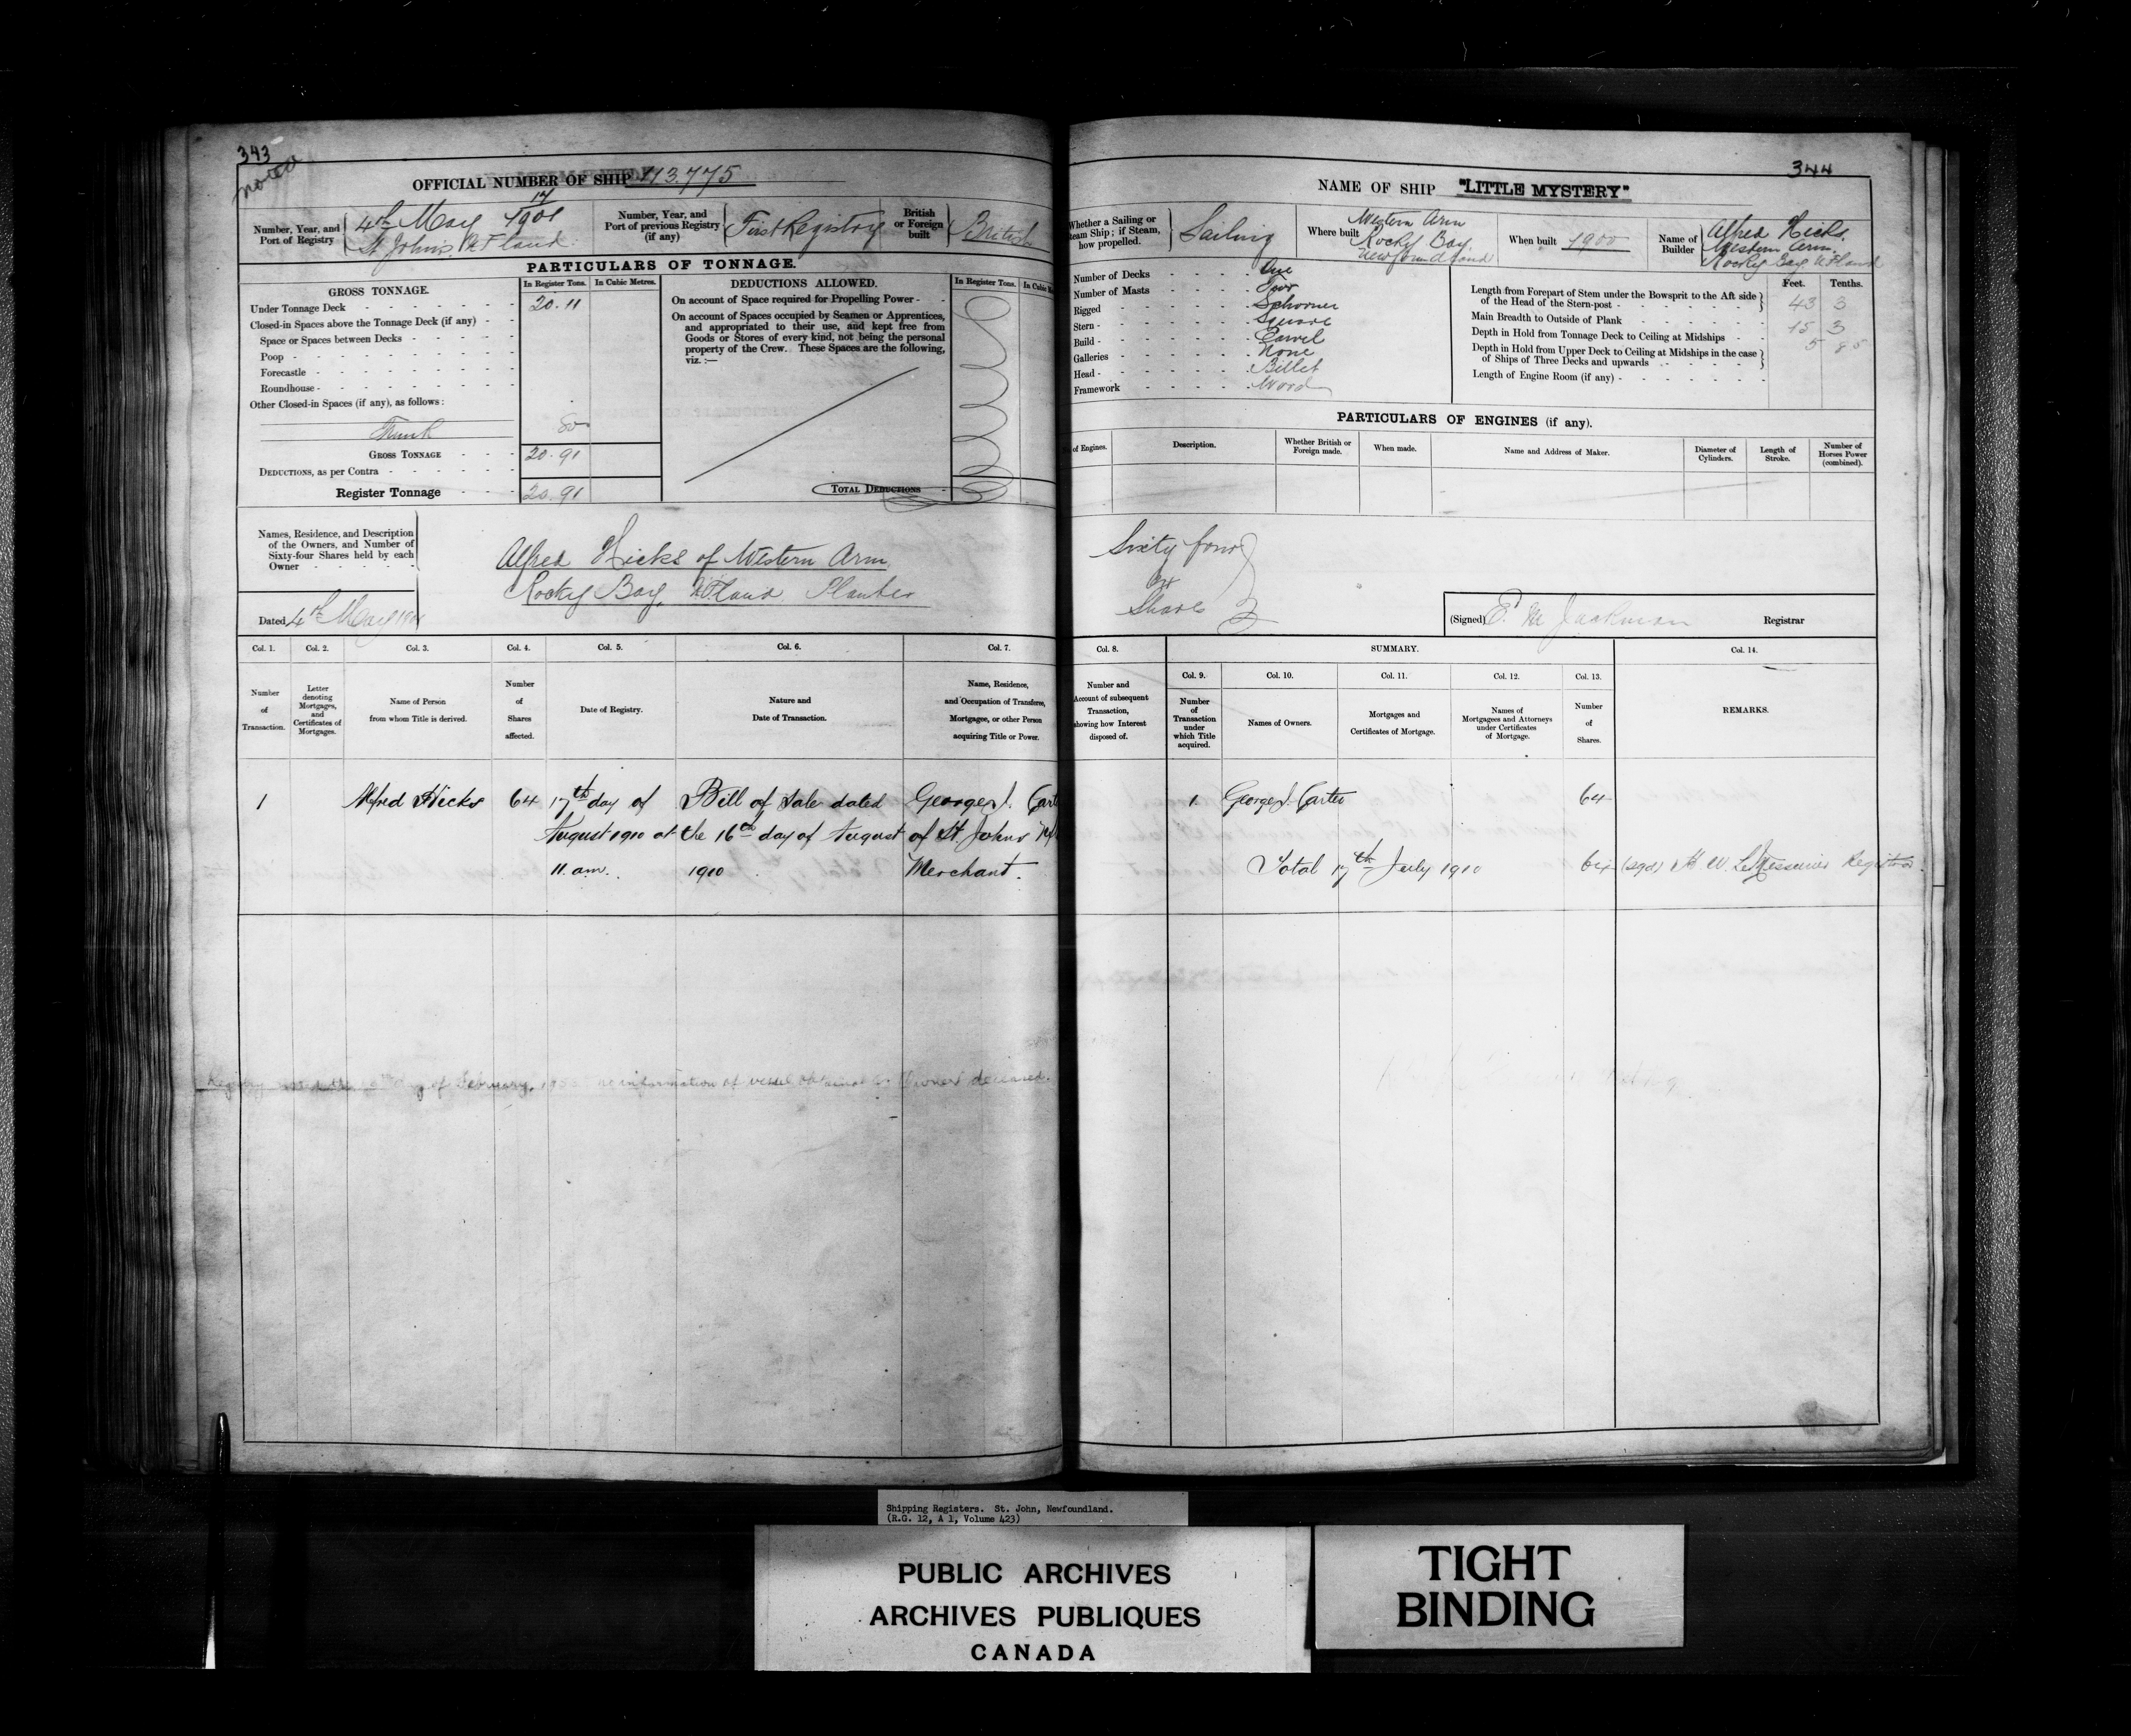 343
noted
OFFICIAL NUMBER OF SHIP 113.775
Number, Year, and Port of Registry
17
4th May 1901
St John's N F land
Number, Year, and Port of previous Registry (if any)
First Registry
British or Foreign built
British
PARTICULARS OF TONNAGE.
GROSS TONNAGE.
In Register Tons. In Cubic Metres.
Under Tonnage Deck 20.11
Closed-in Spaces above the Tonnage Deck (if any)
Space or Spaces between Decks
Poop
Forecastle
Roundhouse
Other Closed-in Spaces (if any), as follows:
Trunk 80
GROSS TONNAGE 20.91
DEDUCTIONS, as per Contra
Register Tonnage 20.91
DEDUCTIONS ALLOWED.
In Register Tons.
On account of Space required for Propelling Power
On account of Spaces occupied by Seamen or Apprentices,
and appropriated to their use, and kept free from
Goods or Stores of every kind, not being the personal
property of the Crew. These Spaces are the following,
viz.:—
TOTAL DEDUCTIONS
Names, Residence, and Description
of the Owners, and Number of
Sixty-four Shares held by each
Owner
Alfred Hicks of Western Arm
Rocky Bay, N.F.land Planter
Dated 4th May 1901
Col. 1. Col. 2. Col. 3. Col. 4. Col. 5. Col. 6. Col. 7.
Number of Transaction.
Letter denoting Mortgages, and Certificates of Mortgages.
Name of Person from whom Title is derived.
Number of Shares affected.
Date of Registry.
Nature and Date of Transaction.
Name, Residence, and Occupation of Transferee, Mortgagee, or other Person acquiring Title or Power.
1 Alfred Hicks 64 17th day of Bill of Sale dated George J. Carter
August 1910 at the 16th day of August of St. Johns
11. a.m. 1910 Merchant.
day of February, no information of vessel Owner deceased.
344
NAME OF SHIP "LITTLE MYSTERY"
Whether a Sailing or Steam Ship; if Steam, how propelled.
Sailing
Where built
Western Arm
Rocky Bay.
Newfoundland
When built 1900
Name of Builder
Alfred Hicks.
Western Arm.
Rocky Bay N.F.land
Number of Decks One
Number of Masts Two
Rigged Schooner
Stern Square
Build Carvel
Galleries None
Head Billet
Framework Wood
Feet. Tenths.
Length from Forepart of Stem under the Bowsprit to the Aft side
of the Head of the Stern-post 43 3
Main Breadth to Outside of Plank 15 3
Depth in Hold from Tonnage Deck to Ceiling at Midships 5 85
Depth in Hold from Upper Deck to Ceiling at Midships in the case
of Ships of Three Decks and upwards
Length of Engine Room (if any)
PARTICULARS OF ENGINES (if any).
of Engines.
Description.
Whether British or Foreign made.
When made.
Name and Address of Maker.
Diameter of Cylinders.
Length of Stroke.
Number of Horses Power (combined).
Sixty four
64
Shares
(Signed) E. M Jackman Registrar
Col. 8. SUMMARY. Col. 14.
Number and Account of subsequent Transaction, showing how Interest disposed of.
Col. 9. Col. 10. Col. 11. Col. 12. Col. 13.
Number of Transaction under which Title acquired.
Names of Owners.
Mortgages and Certificates of Mortgage.
Names of Mortgagees and Attorneys under Certificates of Mortgage.
Number of Shares.
REMARKS.
1 George J. Carter 64
Total 17th July 1910 64 (sgd) H. W. LeMessurier Registrar
Shipping Registers. St. John, Newfoundland.
(R.G. 12, A 1, Volume 423)
PUBLIC ARCHIVES
ARCHIVES PUBLIQUES
CANADA
TIGHT
BINDING